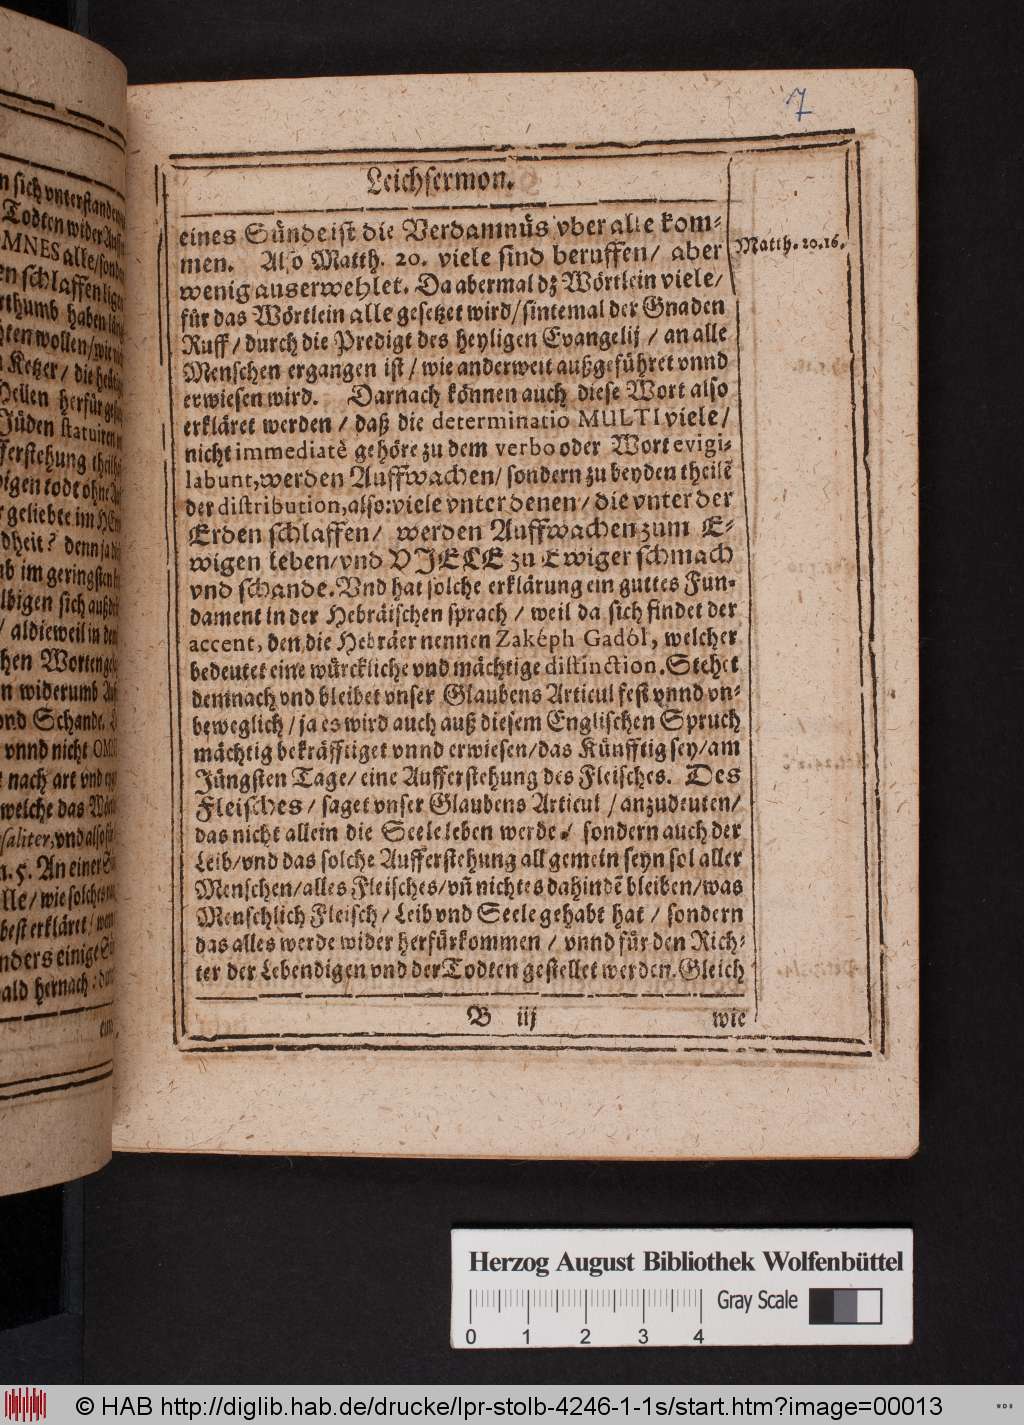 7
Leichsermon.
eines Sünde ist die Verdamnüs vber alle kom-
men. Also Matth. 20. viele sind beruffen/ aber
Matth. 20.16.
wenig auserwehlet. Da abermal dz Wörtlein viele/
für das Wörtlein alle gesetzet wird/ sintemal der Gnaden
Ruff/ durch die Predigt des heyligen Evangelij/ an alle
Menschen ergangen ist/ wie anderweit außgeführet vnnd
erwiesen wird. Darnach können auch diese Wort also
erkläret werden/ daß die determinatio MULTI viele/
nicht immediatè gehöre zu dem verbo oder Wort evigi-
labunt, werden Auffwachen/ sondern zu beyden theilẽ
der distribution, also: viele vnter denen/ die vnter der
Erden schlaffen/ werden Auffwachen zum E-
wigen Leben/ vnd VIELE zu Ewiger schmach
vnd schande. Vnd hat solche erklärung ein guttes Fun-
dament in der Hebräischen sprach/ weil da sich findet der
accent, den die Hebräer nennen Zaképh Gadól, welcher
bedeutet eine würckliche vnd mächtige distinction. Stehet
demnach vnd bleibet vnser Glaubens Articul fest vnnd vn-
beweglich/ ja es wird auch auß diesem Englischen Spruch
mächtig bekräfftiget vnnd erwiesen/ das Künfftig sey/ am
Jüngsten Tage/ eine Aufferstehung des Fleisches. Des
Fleisches/ saget vnser Glaubens Articul/ anzudeuten/
das nicht allein die Seele leben werde/ sondern auch der
Leib/ vnd das solche Aufferstehung allgemein seyn sol aller
Menschen/ alles Fleisches/ vñ nichtes dahindẽ bleiben/ was
Menschlich Fleisch/ Leib vnd Seele gehabt hat/ sondern
das alles werde wider herfürkommen/ vnnd für den Rich-
ter der Lebendigen vnd der Todten gestellet werden. Gleich
B iij wie
Herzog August Bibliothek Wolfenbüttel
Gray Scale
0 1 2 3 4
© HAB http://diglib.hab.de/drucke/lpr-stolb-4246-1-1s/start.htm?image=00013